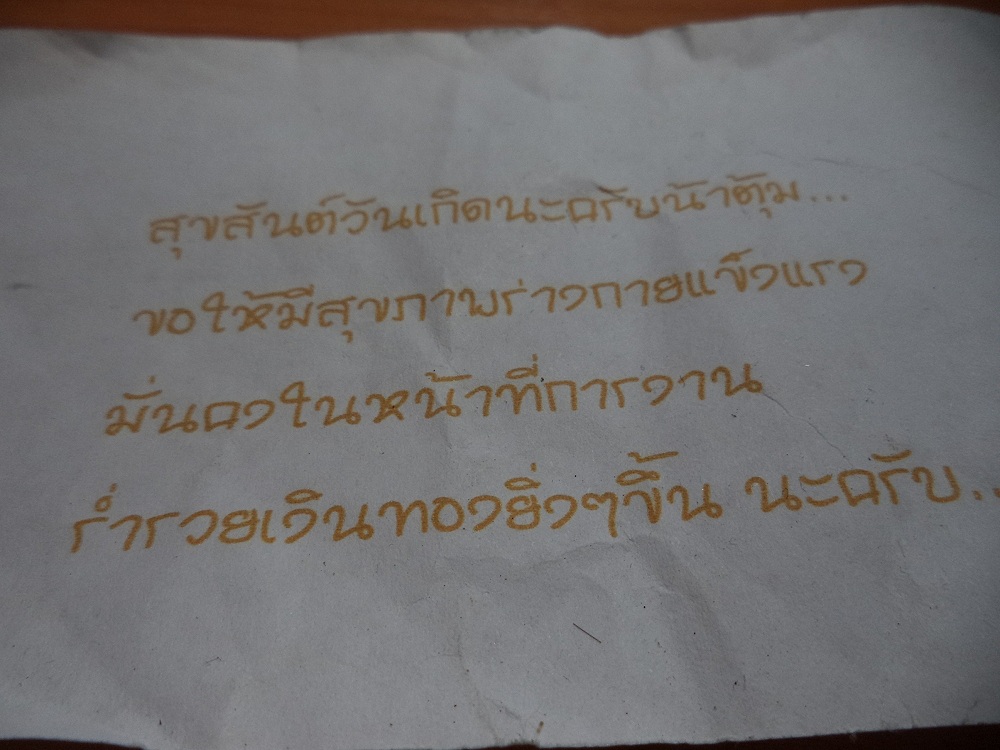 สุขสันต์วันเกิดนะครับน้าตุ้ม...
ขอให้มีสุขภาพร่างกายแข็งแรง
มั่นคงในหน้าที่การงาน
ร่ำรวยเงินทองยิ่งๆขึ้น นะครับ..